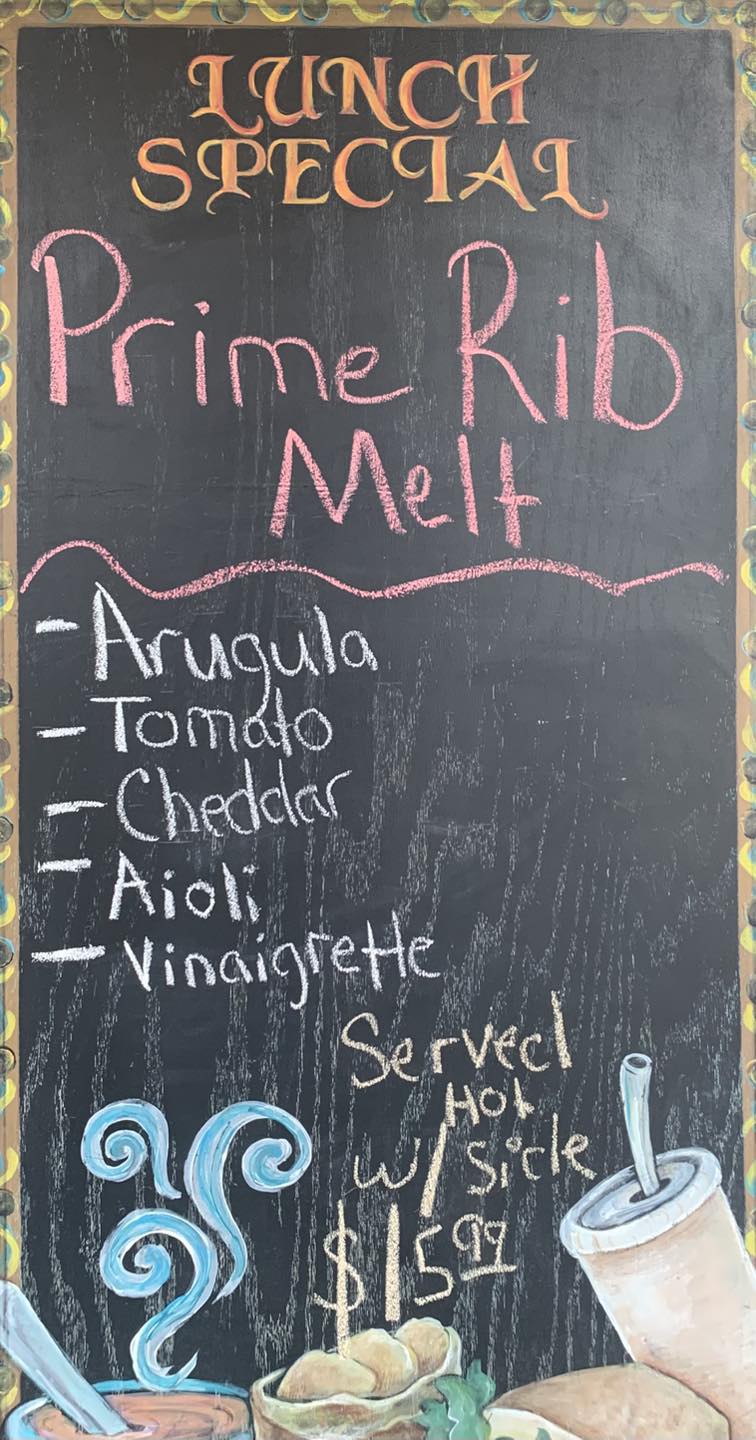 LUNCH
SPECIAL
Prime Rib
Melt
- Arugula
- Tomato
- Cheddar
- Aioli
- Vinaigrette
Served
Hot
w/ Side
$15.99